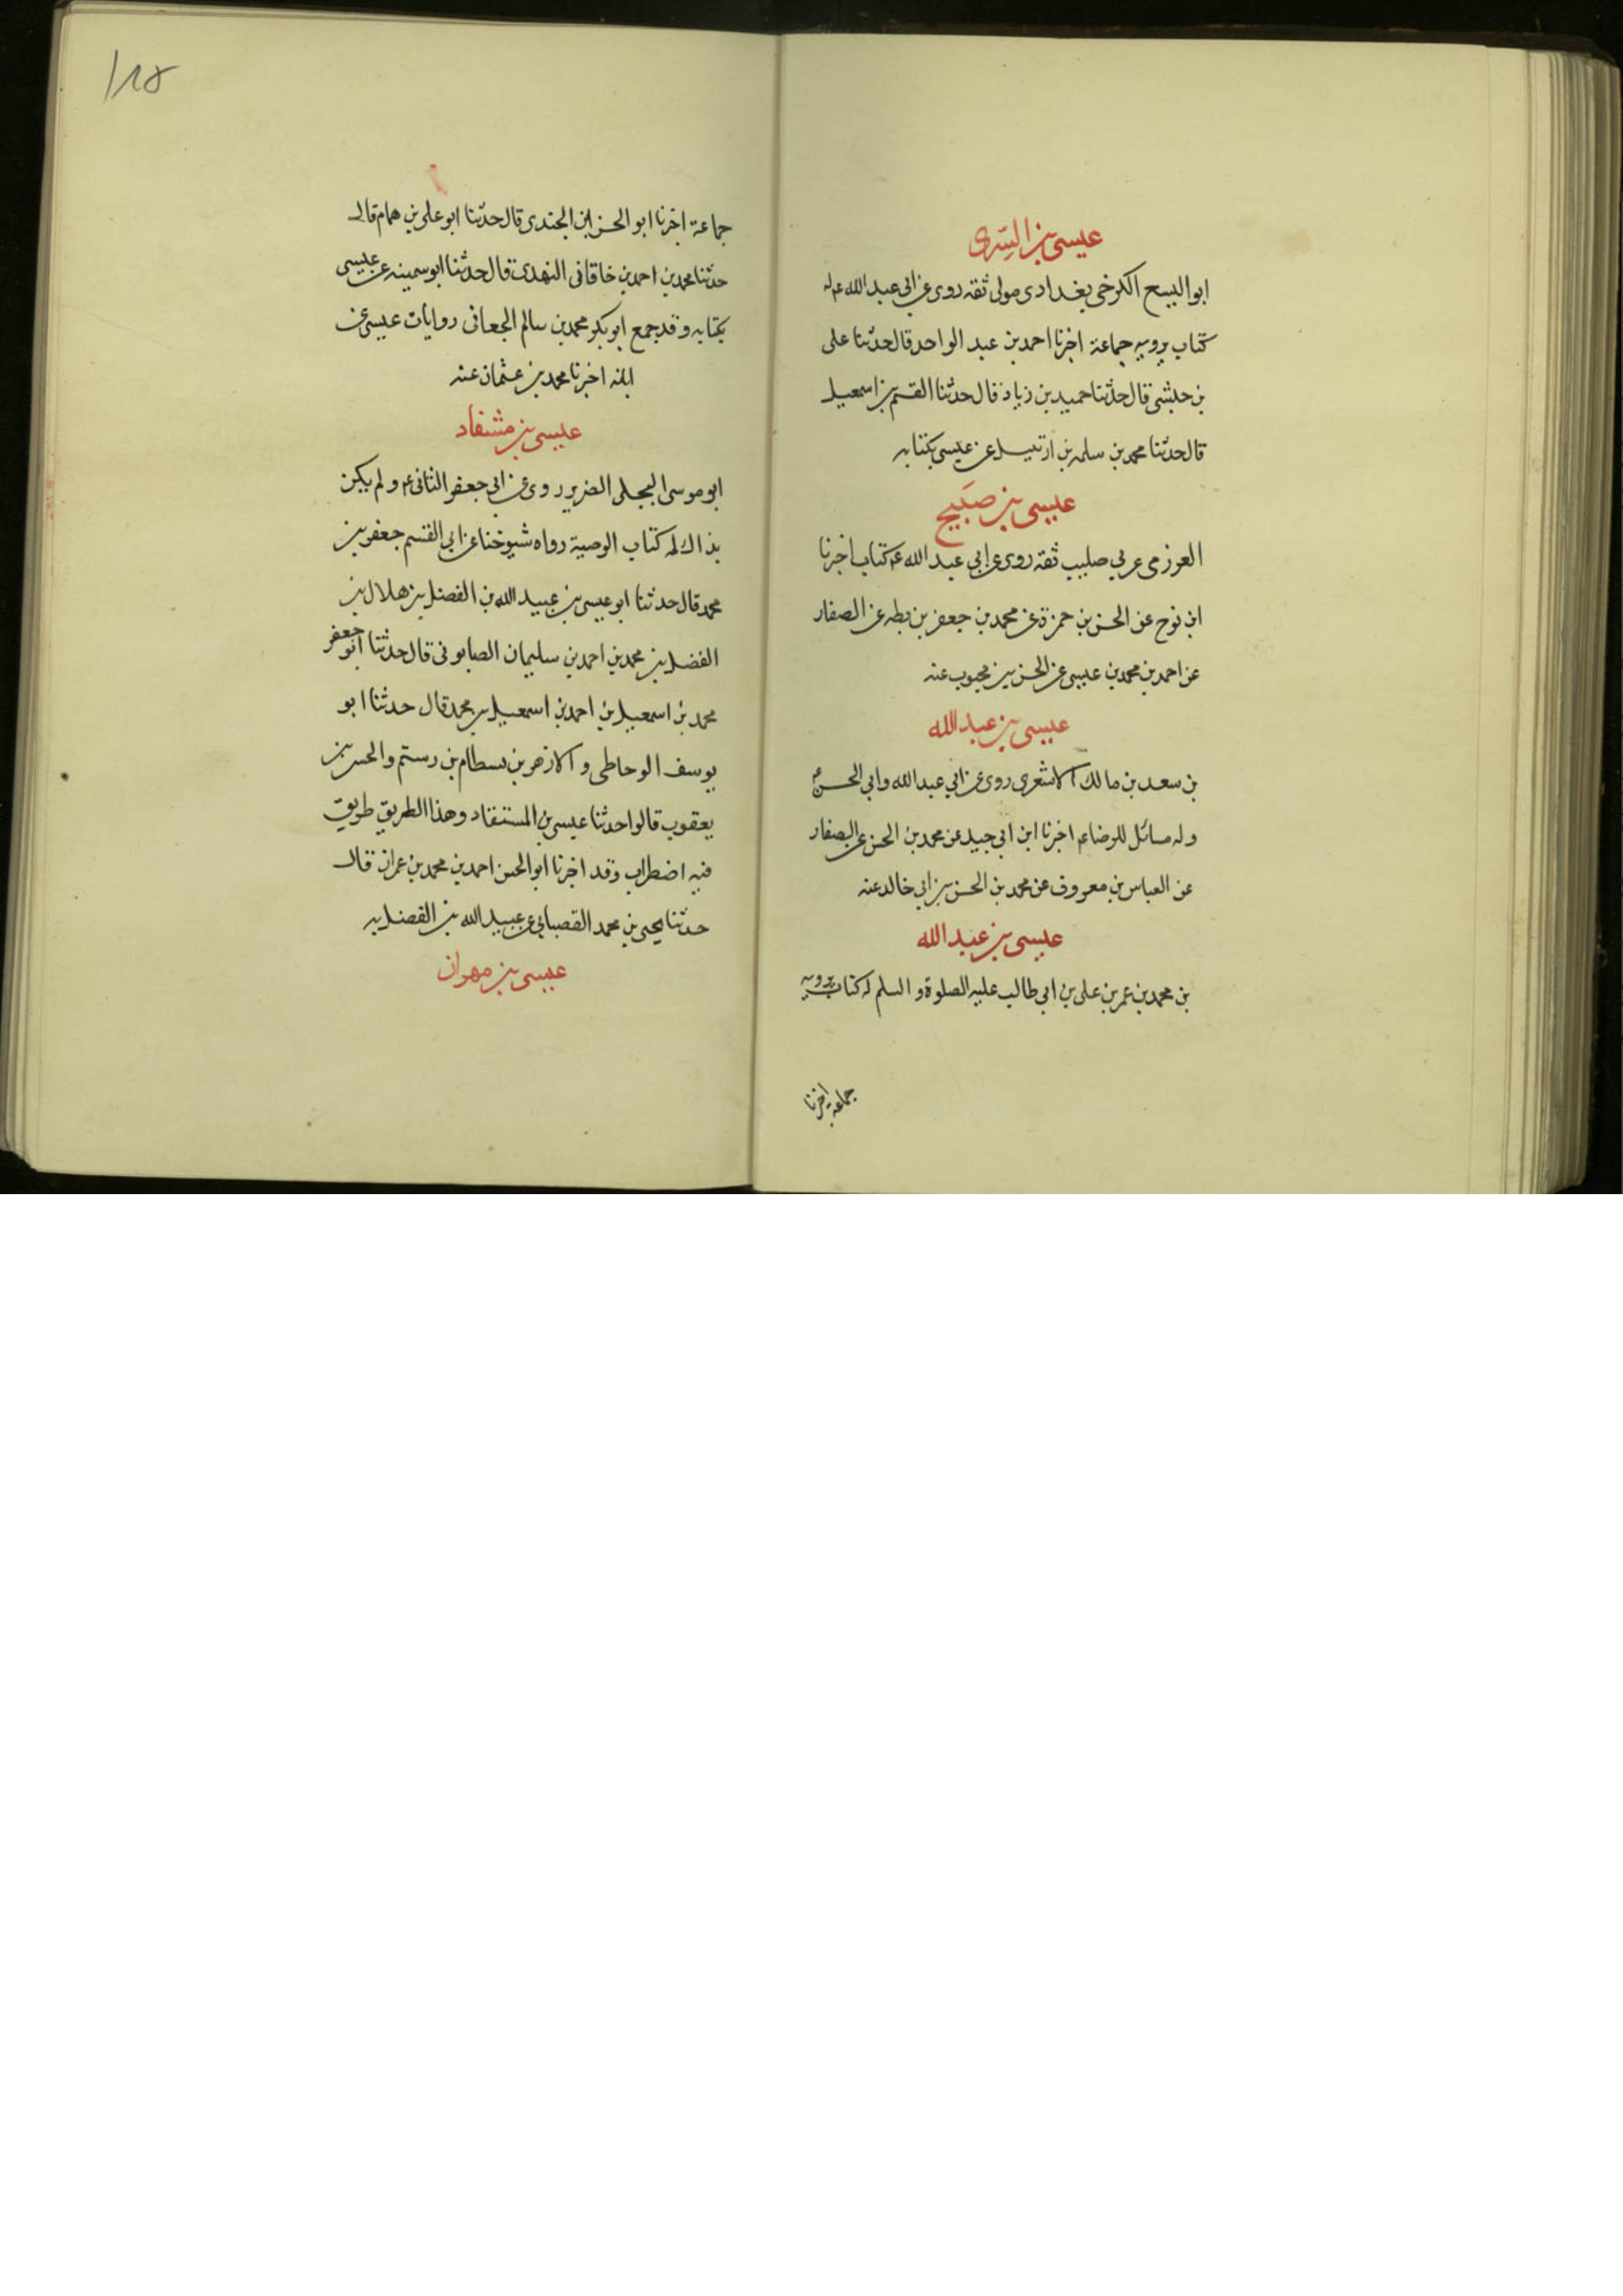 عيسى بن السّرى
ابو اليسع الكرخي بغدادى مولى ثقه روى عن ابى عبد الله ع له
كتاب يرويه جماعة اخبرنا احمد بن عبد الواحد قال حدثنا على
بن حبشى قال حدثنا حميد بن زياد قال حدثنا القسم بن اسمعيل
قال حدثنا محمد بن سلمه بن ارتبيل عن عيسى بكتابه
عيسى بن صَبيح
العرزمى عربي صليب ثقه روى عن ابي عبد الله ع كتاب اخبرنا
ابن نوح عن الحسن بن حمزة عن محمد بن جعفر بن بطه عن الصفار
عن احمد بن محمد بن عيسى عن الحسن بن محبوب عنه
عيسى بن عبد الله
بن سعد بن مالك الاشعري روى عن ابي عبد الله وابي الحسن ع
وله مسائل للرضا ع اخبرنا ابن ابى جيد عن محمد بن الحسن عن الصفار
عن العباس بن معروف عن محمد بن الحسن بن ابي خالد عنه
عيسى بن عبد الله
بن محمد بن عمر بن على بن ابى طالب عليه الصلوة و السلم له كتاب يرويه
جماعة اخبرنا
١١٨
جماعة اخبرنا ابو الحسن بن الجندى قال حدثنا ابو على بن همام قال
حدثنا محمد بن احمد بن خاقانى النهدى قال حدثنا ابو سمينه عن عيسى
بكتابه و قد جمع ابو بكر محمد بن سالم الجعانى روايات عيسى عن
ابائه اخبرنا محمد بن عثمان عنه
عيسى بن مشتفاد
ابو موسى البجلى الضرير روى عن ابى جعفر الثانى ع و لم يكن
بذاك له كتاب الوصية رواه شيوخنا عن ابى القسم جعفر بن
محمد قال حدثنا ابو عيسى بن عبيد الله بن الفضل بن هلال بن
الفضل بن محمد بن احمد بن سليمان الصابونى قال حدثنا ابو جعفر
محمد بن اسمعيل بن احمد بن اسمعيل بن محمد قال حدثنا ابو
يوسف الوحاظى و الازهر بن بسطام بن رستم والحسن بن
يعقوب قالوا حدثنا عيسى بن المستفاد وهذا الطريق طريق
فيه اضطراب وقد اخبرنا ابو الحسن احمد بن محمد بن عمران قال
حدثنا يحيى بن محمد القصباني عن عبيد الله بن الفضل به
عيسى بن مهران